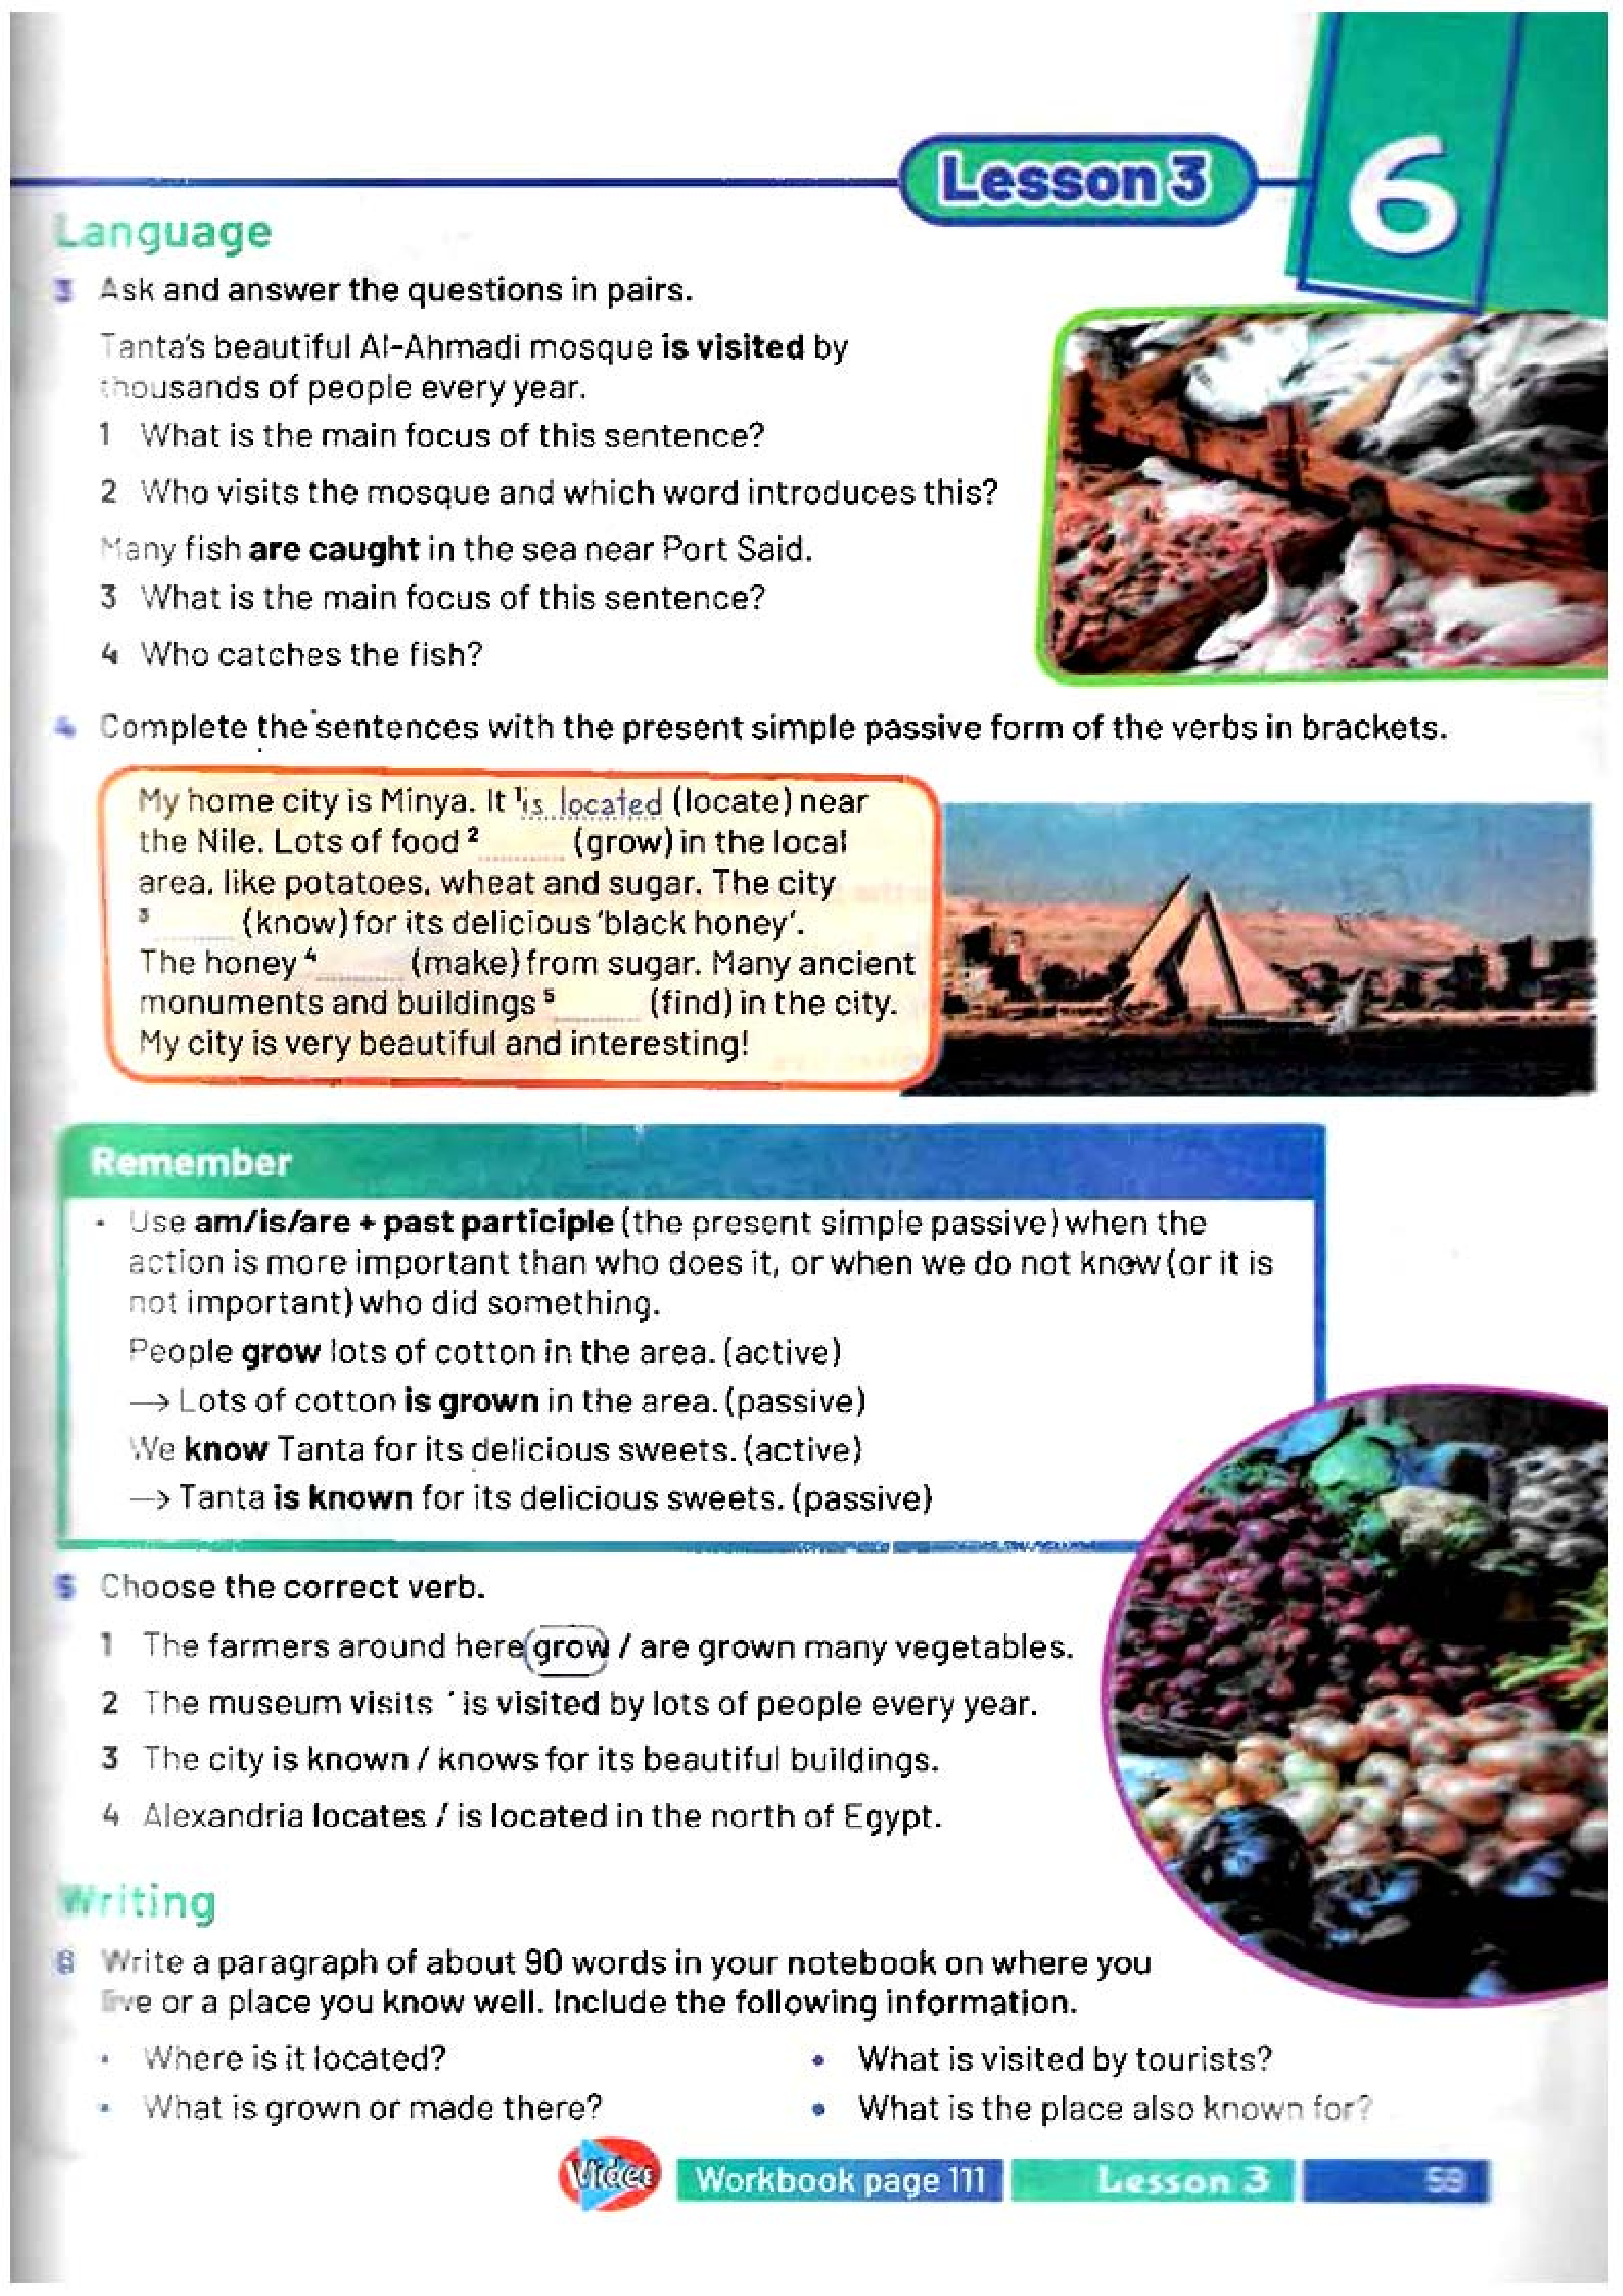 Lesson 3
6
Language
3 Ask and answer the questions in pairs.
Tanta's beautiful Al-Ahmadi mosque is visited by
thousands of people every year.
1 What is the main focus of this sentence?
2 Who visits the mosque and which word introduces this?
Many fish are caught in the sea near Port Said.
3 What is the main focus of this sentence?
4 Who catches the fish?
4 Complete the sentences with the present simple passive form of the verbs in brackets.
My home city is Minya. It ¹is located (locate) near
the Nile. Lots of food ² ........ (grow) in the local
area, like potatoes, wheat and sugar. The city
³ ........ (know) for its delicious 'black honey'.
The honey ⁴ ........ (make) from sugar. Many ancient
monuments and buildings ⁵ ........ (find) in the city.
My city is very beautiful and interesting!
Remember
• Use am/is/are + past participle (the present simple passive) when the
action is more important than who does it, or when we do not know (or it is
not important) who did something.
People grow lots of cotton in the area. (active)
→ Lots of cotton is grown in the area. (passive)
We know Tanta for its delicious sweets. (active)
→ Tanta is known for its delicious sweets. (passive)
5 Choose the correct verb.
1 The farmers around here grow / are grown many vegetables.
2 The museum visits / is visited by lots of people every year.
3 The city is known / knows for its beautiful buildings.
4 Alexandria locates / is located in the north of Egypt.
Writing
6 Write a paragraph of about 90 words in your notebook on where you
live or a place you know well. Include the following information.
• Where is it located?
• What is grown or made there?
• What is visited by tourists?
• What is the place also known for?
Video Workbook page 111 Lesson 3 59